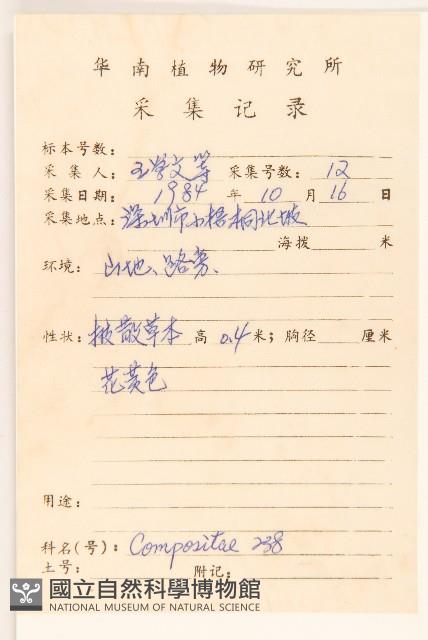 华南植物研究所
采集记录
标本号数：
采集人：王学文等 采集号数：12
采集日期：1984 年 10 月 16 日
采集地点：深圳市小梧桐北坡
海拨 米
环境：山地、路旁、
性状：披散草本 高 0.4 米；胸径 厘米
花黄色
用途：
科名(号)：Compositae 238
土号： 附记：
國立自然科學博物館
NATIONAL MUSEUM OF NATURAL SCIENCE